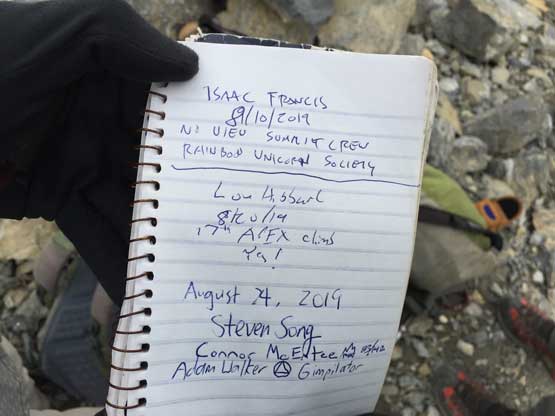 ISAAC FRANCIS
8/10/2019
NO VIEW SUMMIT CREW
RAINBOW UNICORN SOCIETY
8/20/19
17th climb
Ya!
August 24, 2019
Steven Song
Connor McEntee
Adam Walker Gimpilator